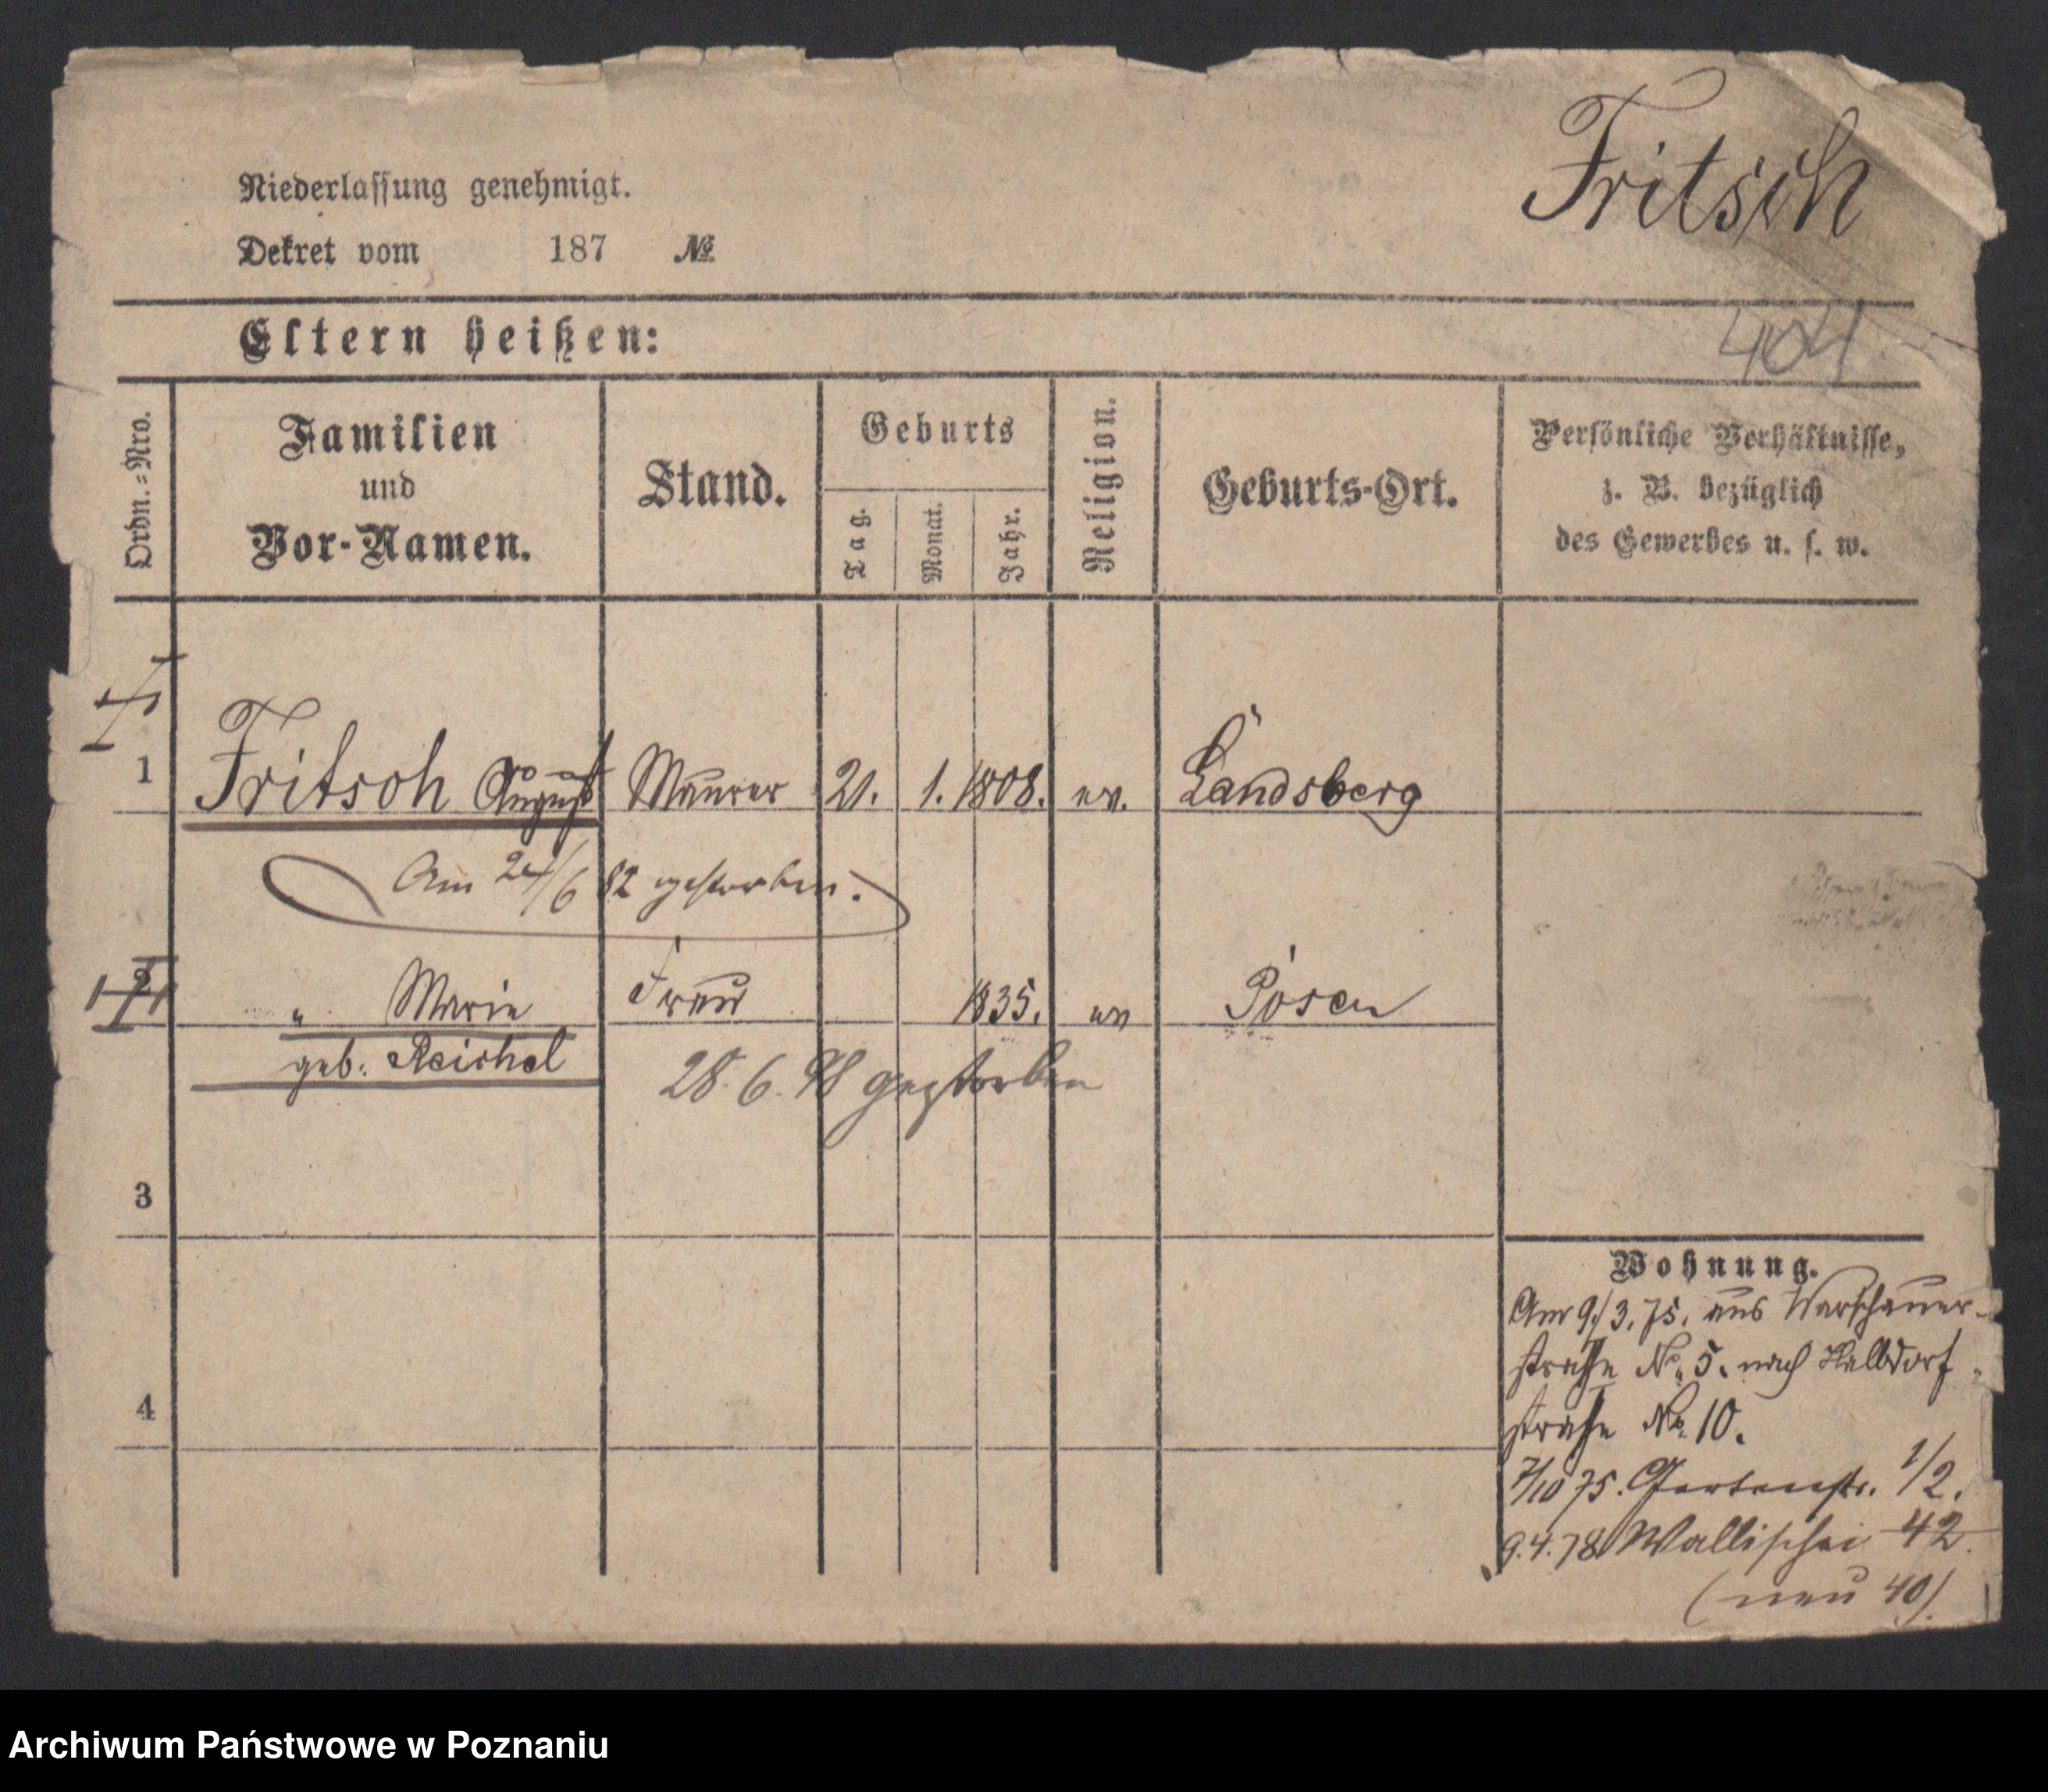 Fritsch
Niederlassung genehmigt.
Dekret vom 187 №
404
Eltern heißen:
Ordn.-Nro.
Familien
und
Vor-Namen.
Stand.
Geburts
Tag.
Monat.
Jahr.
Religion.
Geburts-Ort.
Persönliche Verhältnisse,
z. B. bezüglich
des Gewerbes u. s. w.
1 Fritsch August Maurer 21. 1. 1808. ev. Landsberg
Am 24/6 82 gestorben.
2 " Marie Frau 1835. ev Posen
geb. Reichel
28. 6. 98 gestorben
3
4
Wohnung.
Am 9./3. 75. aus Warschauer-
straße No. 5. nach Halbdorf-
straße No. 10.
7/10 75. Gartenstr. 1/2.
9.4.78 Wallischei 42.
(neu 40).
Archiwum Państwowe w Poznaniu